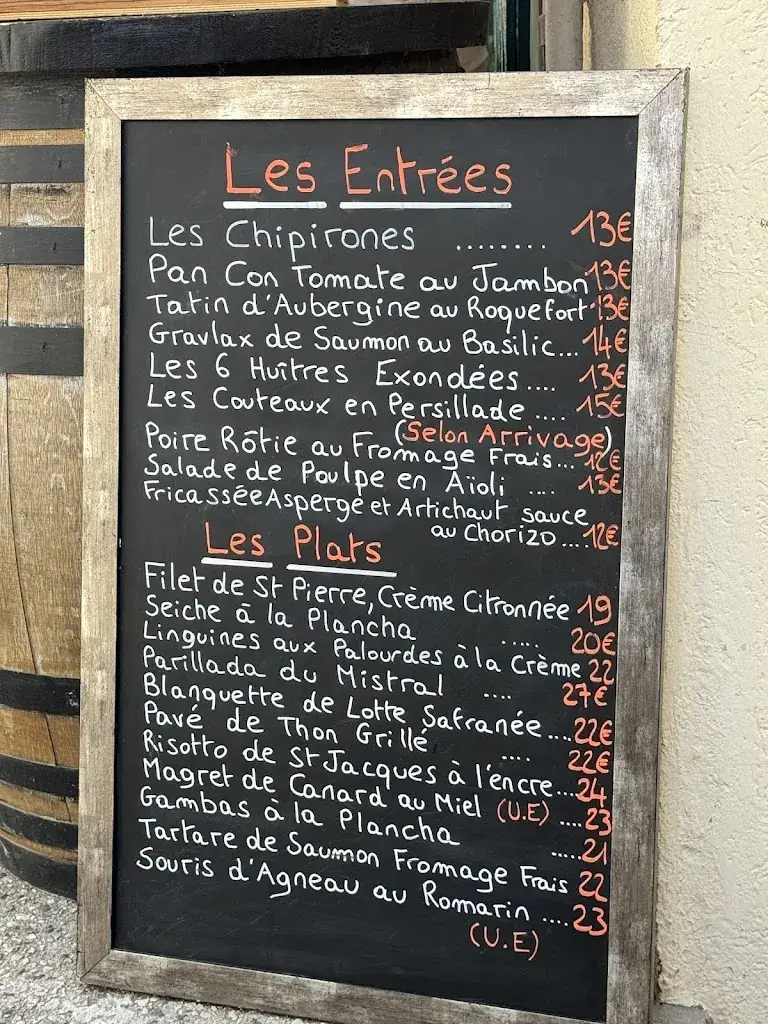 Les Entrées
Les Chipirones ........ 13€
Pan Con Tomate au Jambon 13€
Tatin d'Aubergine au Roquefort 13€
Gravlax de Saumon au Basilic... 14€
Les 6 Huîtres Exondées .... 13€
Les Couteaux en Persillade .... 15€
(Selon Arrivage)
Poire Rôtie au Fromage Frais... 12€
Salade de Poulpe en Aïoli .... 13€
Fricassée Asperge et Artichaut sauce
au Chorizo .... 12€
Les Plats
Filet de St Pierre, Crème Citronnée 19
Seiche à la Plancha ..... 20€
Linguines aux Palourdes à la Crème 22
Parillada du Mistral .... 27€
Blanquette de Lotte Safranée ... 22€
Pavé de Thon Grillé .... 22€
Risotto de St Jacques à l'encre... 24
Magret de Canard au Miel (U.E) .... 23
Gambas à la Plancha ..... 21
Tartare de Saumon Fromage Frais 22
Souris d'Agneau au Romarin .... 23
(U.E)